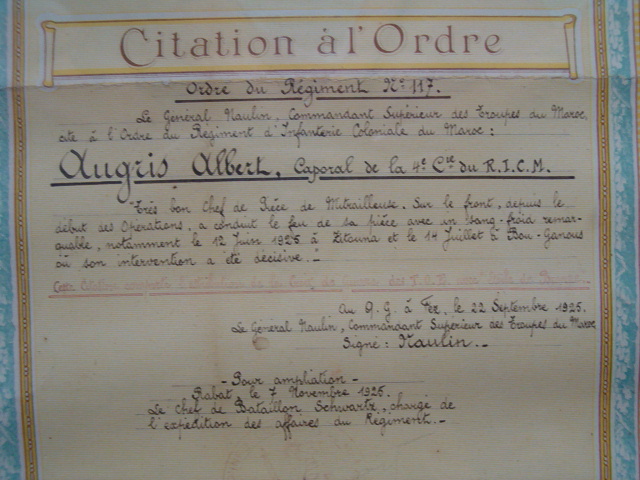 Citation à l'Ordre
Ordre du Régiment N° 117.
Le Général Naulin, Commandant Supérieur des Troupes du Maroc,
cite à l'Ordre du Régiment d'Infanterie Coloniale du Maroc :
Augris Albert, Caporal de la 4e Cie du R.I.C.M.
"Très bon Chef de Pièce de Mitrailleuse. Sur le front, depuis le
début des Opérations, a conduit le feu de sa pièce avec un sang-froid remar-
quable, notamment le 12 Juin 1925 à Zitouna et le 14 Juillet à Bou-Ganous
où son intervention a été décisive."
Cette Citation comporte l'attribution de la Croix de guerre des T.O.E. avec
Au Q.G. à Fez, le 22 Septembre 1925.
Le Général Naulin, Commandant Supérieur des Troupes du Maroc
Signé : Naulin.-
- Pour ampliation -
Rabat le 7 Novembre 1925.
Le Chef de Bataillon Schwartz, chargé de
l'expédition des affaires du Régiment.-